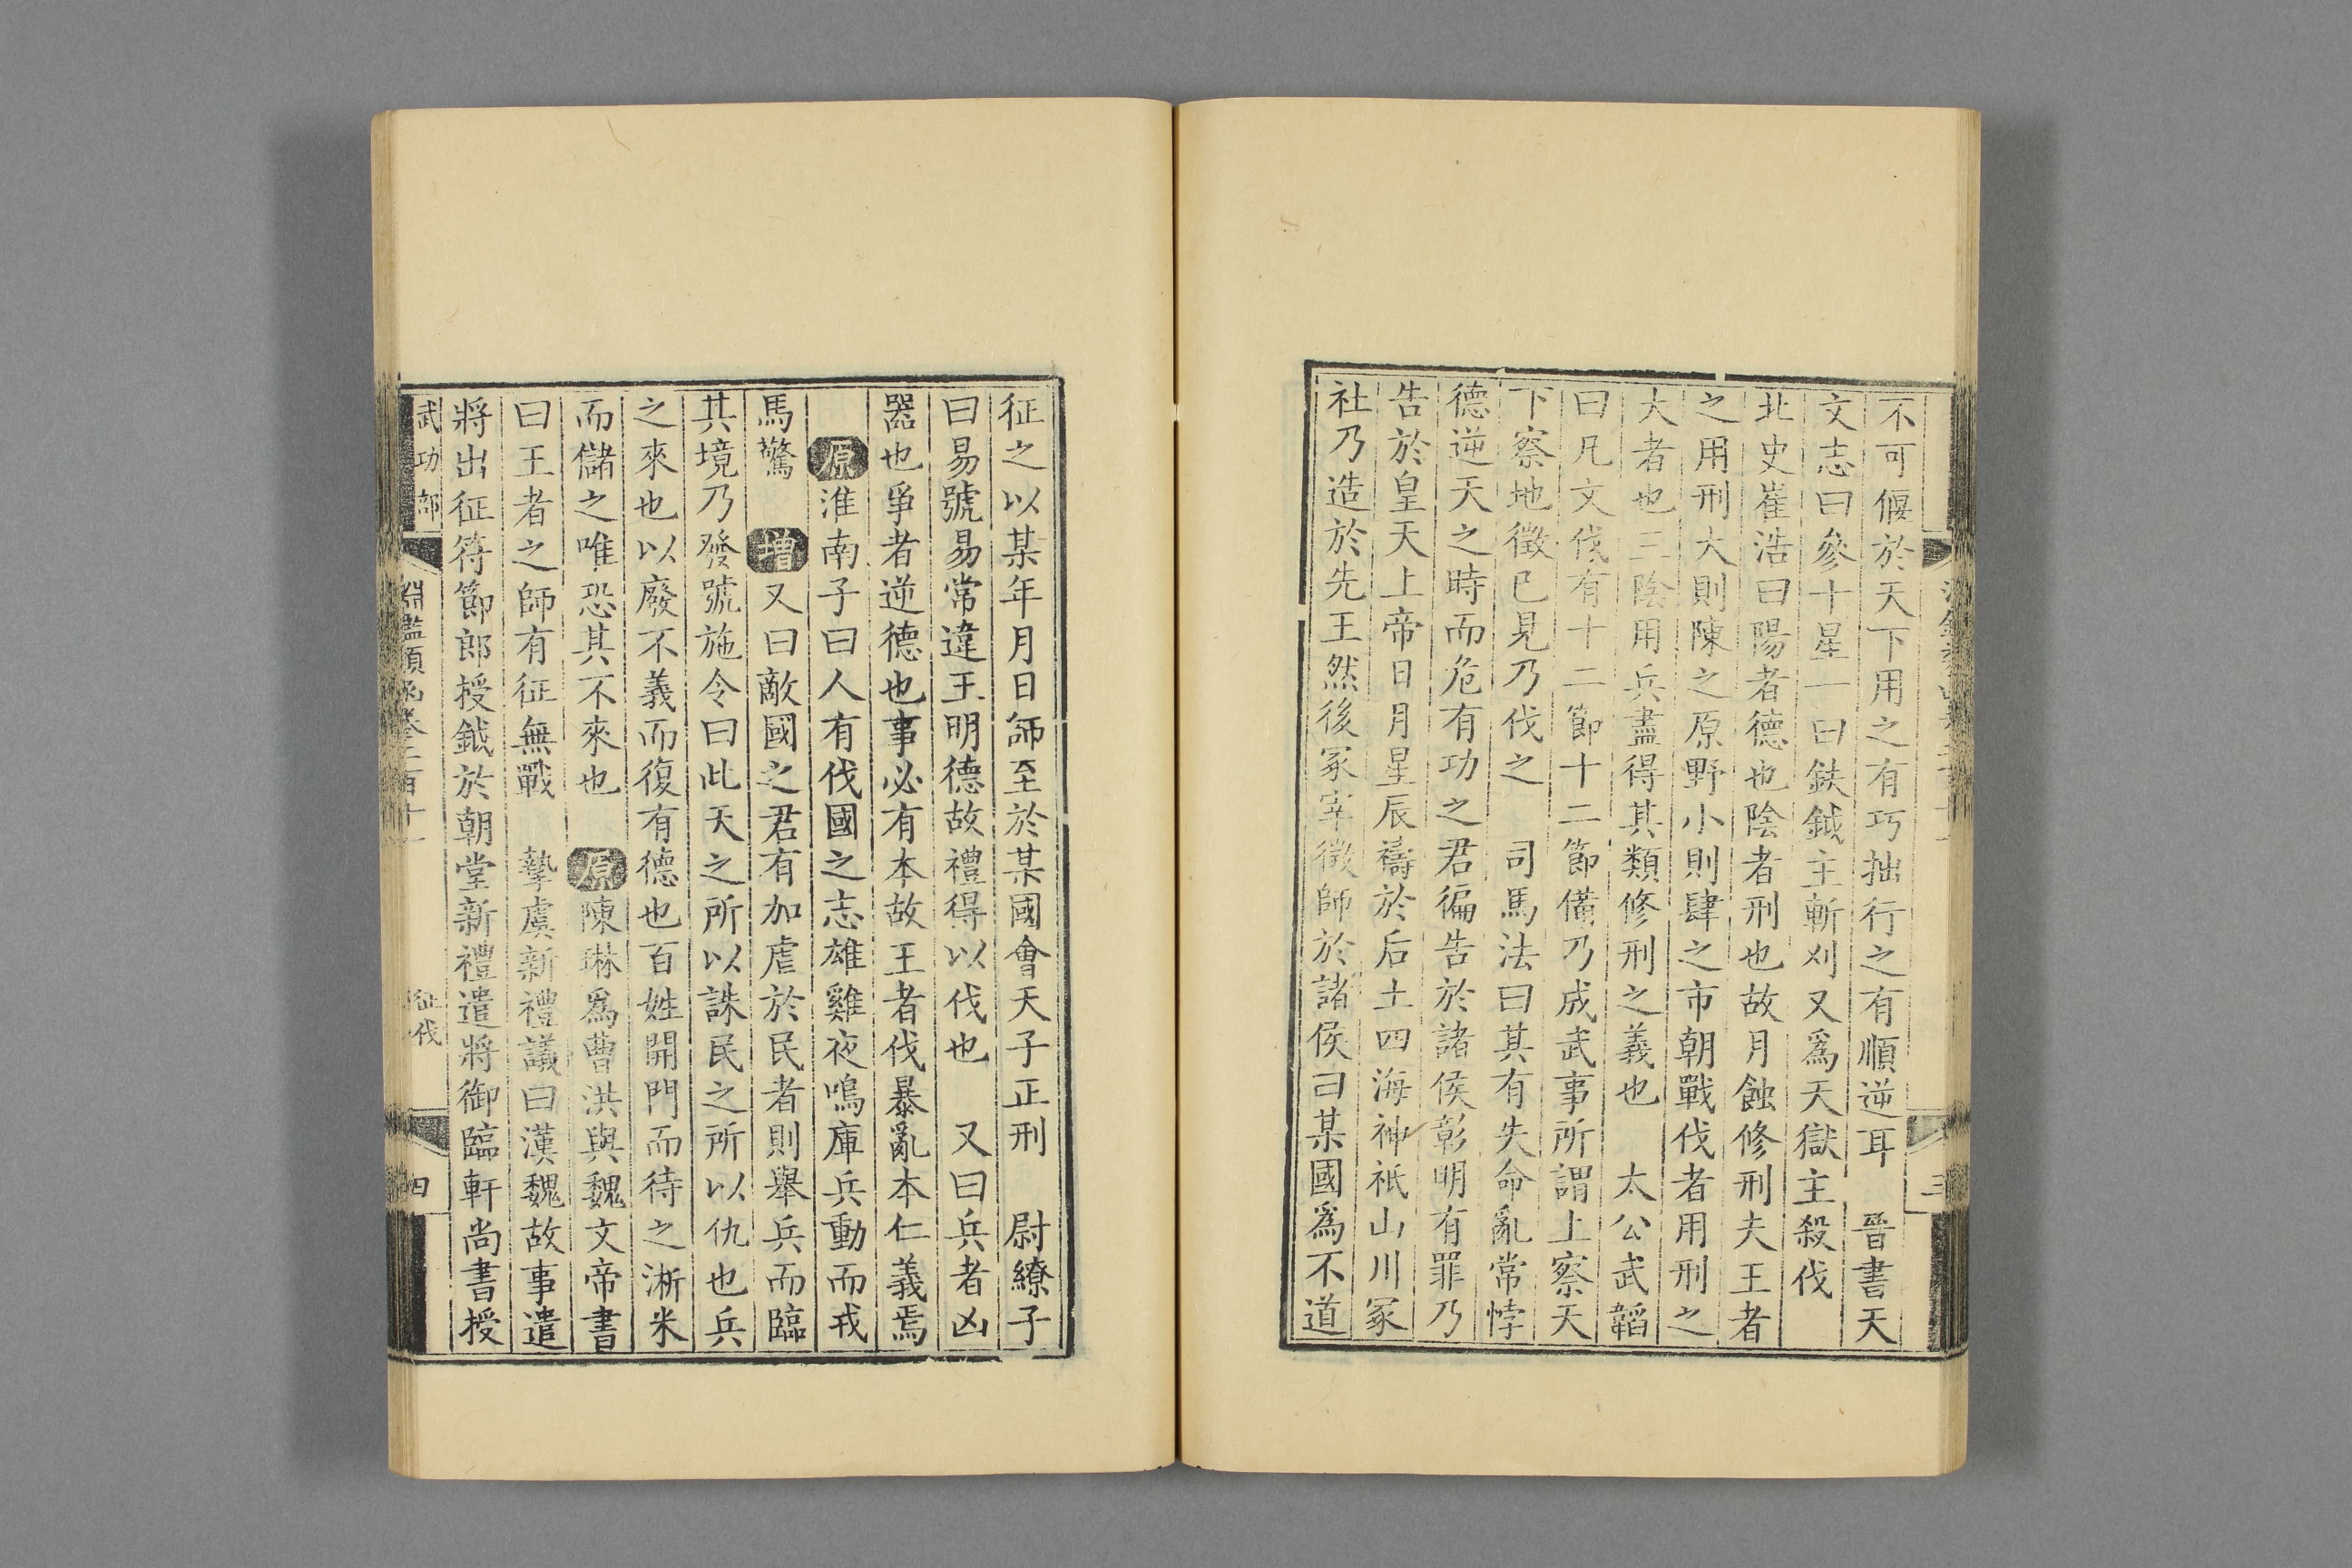 不可偃於天下用之有巧拙行之有順逆耳　晉書天
文志曰參十星一曰鈇鉞主斬刈又爲天獄主殺伐
北史崔浩曰陽者德也陰者刑也故月蝕修刑夫王者
之用刑大則陳之原野小則肆之市朝戰伐者用刑之
大者也三陰用兵盡得其類修刑之義也　太公武韜
曰凡文伐有十二節十二節備乃成武事所謂上察天
下察地徵已見乃伐之　司馬法曰其有失命亂常悖
德逆天之時而危有功之君徧告於諸侯彰明有罪乃
告於皇天上帝日月星辰禱於后土四海神祇山川冢
社乃造於先王然後冢宰徵師於諸侯曰某國爲不道
三
征之以某年月日師至於某國會天子正刑　尉繚子
曰易號易常違王明德故禮得以伐也　又曰兵者凶
器也爭者逆德也事必有本故王者伐暴亂本仁義焉
原淮南子曰人有伐國之志雄雞夜鳴庫兵動而戎
馬驚　增又曰敵國之君有加虐於民者則舉兵而臨
其境乃發號施令曰此天之所以誅民之所以仇也兵
之來也以廢不義而復有德也百姓開門而待之淅米
而儲之唯恐其不來也　原陳琳爲曹洪與魏文帝書
曰王者之師有征無戰　摯虞新禮議曰漢魏故事遣
將出征符節郎授鉞於朝堂新禮遣將御臨軒尚書授
武功部　淵鑑類函卷二百十一　征伐　四